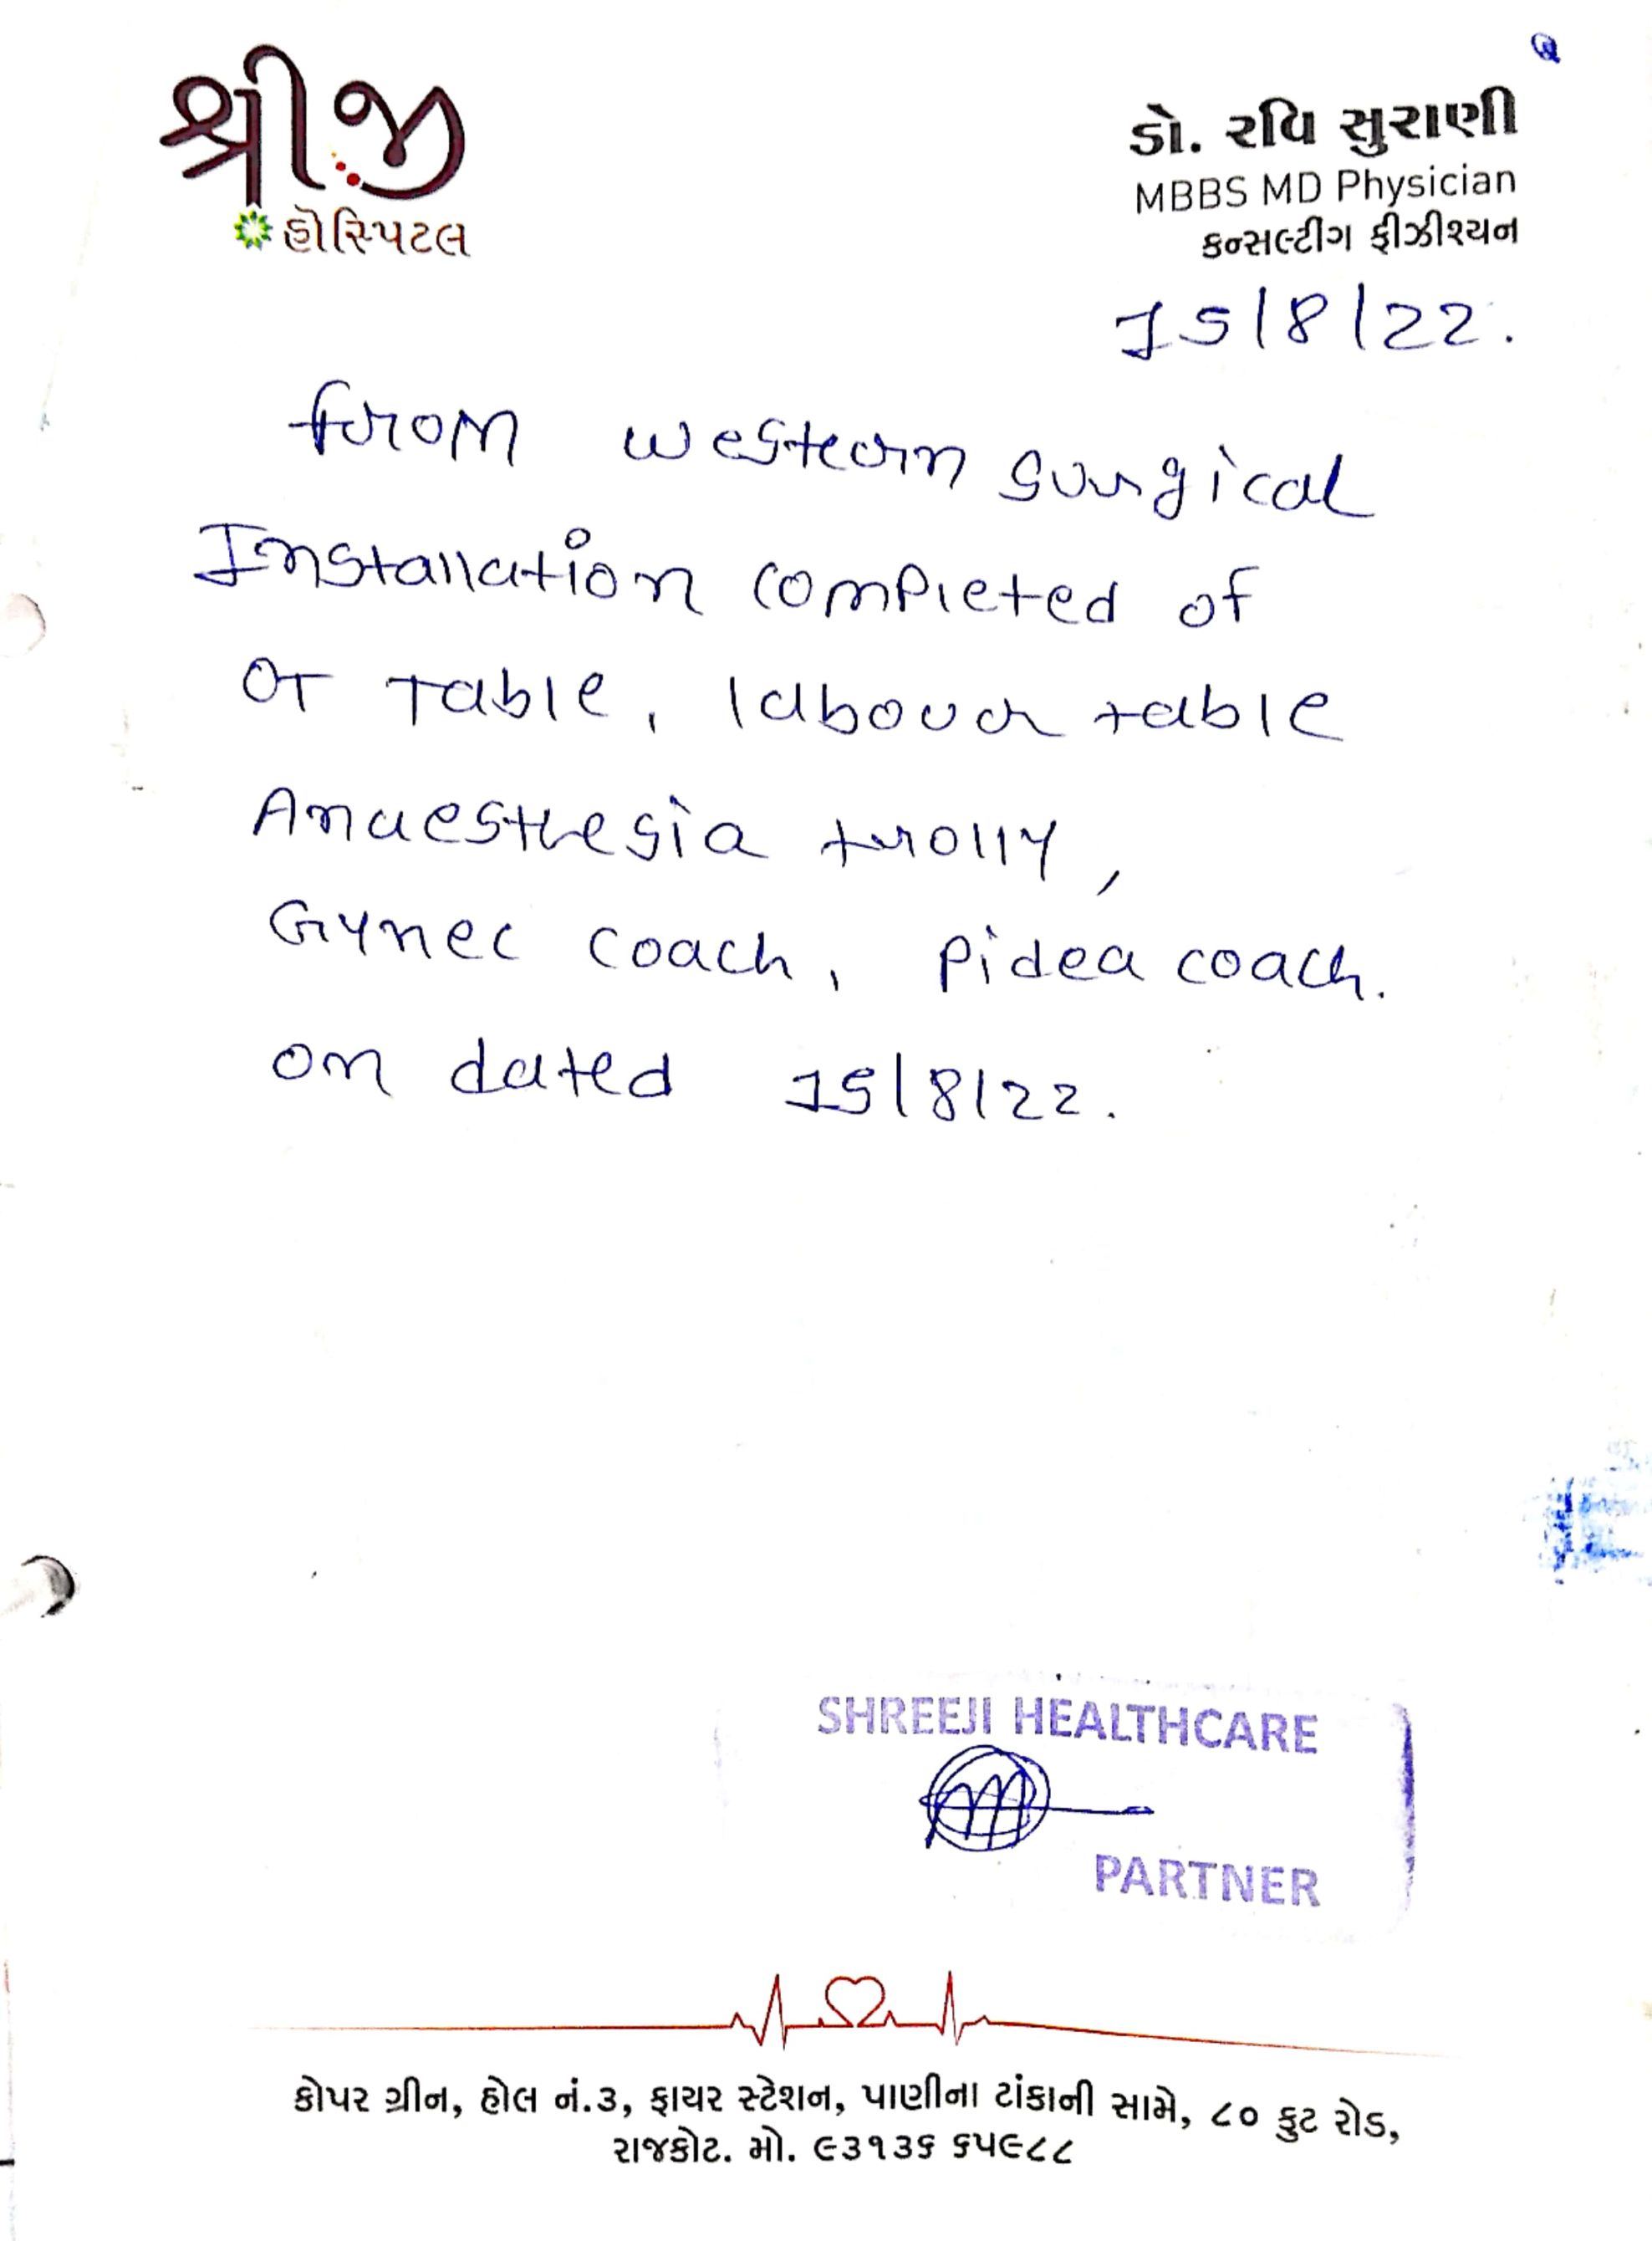 શ્રીજી
હોસ્પિટલ
ડો. રવિ સુરાણી
MBBS MD Physician
કન્સલ્ટીંગ ફીઝીશ્યન
15/8/22.
from western surgical
Installation completed of
OT Table, labour table
Anaesthesia trolly,
Gynec coach, Pidea coach.
on dated 15/8/22.
SHREEJI HEALTHCARE
PARTNER
કોપર ગ્રીન, હોલ નં.૩, ફાયર સ્ટેશન, પાણીના ટાંકાની સામે, ૮૦ ફુટ રોડ,
રાજકોટ. મો. ૯૩૧૩૬ ૬૫૯૮૮